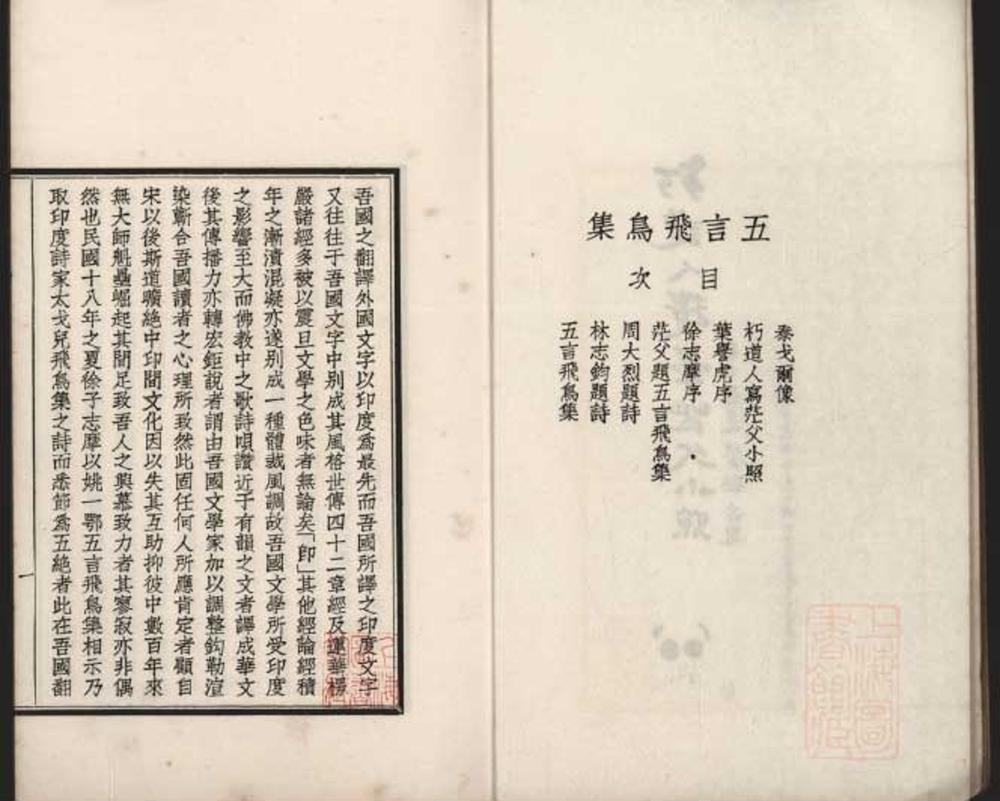 五言飛鳥集
目次
泰戈爾像
朽道人寫茫父小照
葉譽虎序
徐志摩序
茫父題五言飛鳥集
周大烈題詩
林志鈞題詩
五言飛鳥集
上海圖書館藏
吾國之翻譯外國文字以印度爲最先而吾國所譯之印度文字
又往往于吾國文字中别成其風格世傳四十二章經及蓮華楞
嚴諸經多被以震旦文學之色味者無論矣「即」其他經論經積
年之漸漬混凝亦遂别成一種體裁風調故吾國文學所受印度
之影響至大而佛教中之歌詩唄讚近于有韻之文者譯成華文
後其傳播力亦轉宏鉅說者謂由吾國文學家加以調整鈎勒渲
染蘄合吾國讀者之心理所致然此固任何人所應肯定者顧自
宋以後斯道曠絶中印間文化因以失其互助抑彼中數百年來
無大師魁壘崛起其間足致吾人之興慕致力者其寥寂亦非偶
然也民國十八年之夏徐子志摩以姚一鄂五言飛鳥集相示乃
取印度詩家太戈兒飛鳥集之詩而悉節爲五絶者此在吾國翻
一